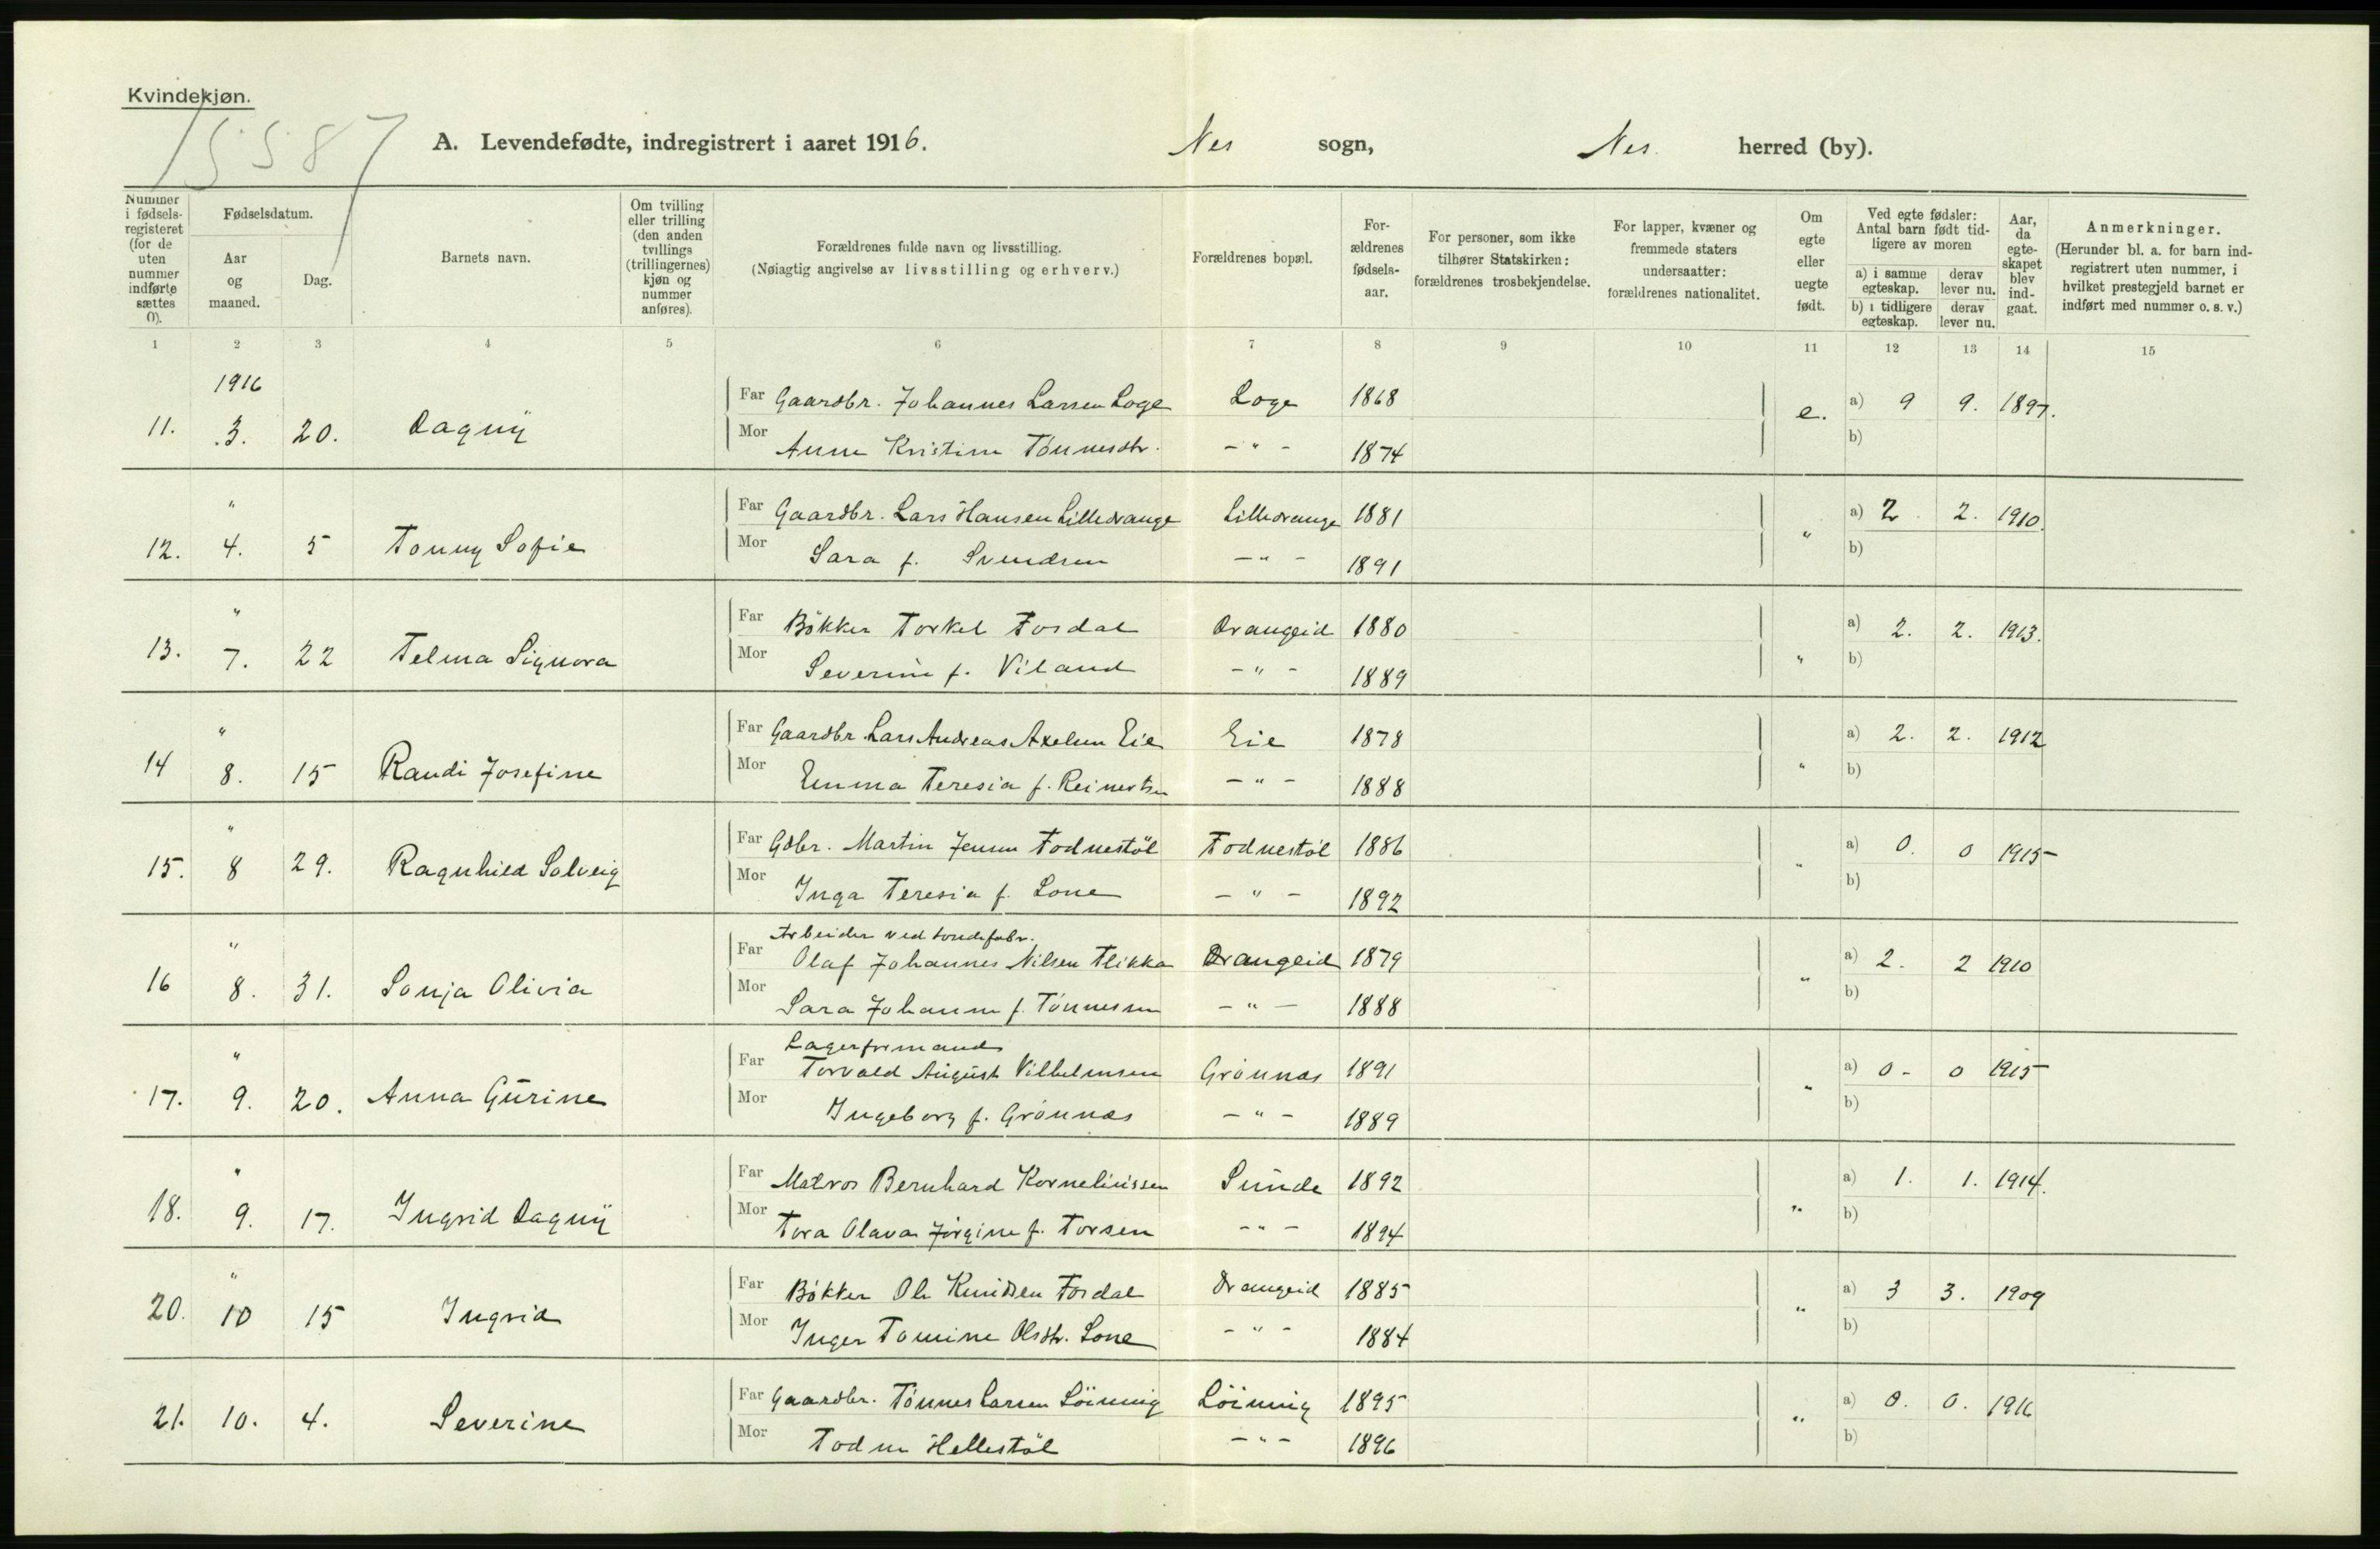 Kvindekjøn.
15587
A. Levendefødte, indregistrert i aaret 1916. Nes sogn, Nes. herred (by).
Nummer i fødsels- registeret (for de uten nummer indførte sættes 0).
Fødselsdatum.
Aar og maaned.
Dag.
Barnets navn.
Om tvilling eller trilling (den anden tvillings (trillingernes) kjøn og nummer anføres).
Forældrenes fulde navn og livsstilling.
(Nøiagtig angivelse av livsstilling og erhverv.)
Forældrenes bopæl.
For- ældrenes fødsels- aar.
For personer, som ikke tilhører Statskirken: forældrenes trosbekjendelse.
For lapper, kvæner og fremmede staters undersaatter: forældrenes nationalitet.
Om egte eller uegte født.
Ved egte fødsler: Antal barn født tid- ligere av moren
a) i samme egteskap. derav lever nu.
b) i tidligere egteskap. derav lever nu.
Aar, da egte- skapet blev ind- gaat.
Anmerkninger.
(Herunder bl. a. for barn ind- registrert uten nummer, i hvilket prestegjeld barnet er indført med nummer o. s. v.)
1 2 3 4 5 6 7 8 9 10 11 12 13 14 15
1916
Far Gaardbr. Johannes Larsen Loge Loge 1868 e. a) 9 9. 1897.
11. 3. 20. Dagny
Mor Anne Kristine Tönnesdtr. - " - 1874 b)
"
Far Gaardbr. Lars Hansen Lilledrange Lilledrange 1881 " a) 2. 2. 1910.
12. 4. 5 Tonny Sofie
Mor Sara f. Svendsen - " - 1891 b)
"
Far Bökker Torkel Fosdal Drangeid 1880 " a) 2. 2. 1913.
13. 7. 22 Telma Signora
Mor Severine f. Viland - " - 1889 b)
"
Far Gaardbr Lars Andreas Axelsen Eie Eie 1878 " a) 2. 2. 1912
14 8. 15 Randi Josefine
Mor Emma Teresia f. Reinertsen - " - 1888 b)
"
Far Gdbr. Martin Jensen Fodnestöl Fodnestöl 1886 " a) 0. 0 1915
15. 8 29. Ragnhild Solveig
Mor Inga Teresia f. Lone - " - 1892 b)
"
Arbeider ved töndefabr.
Far Olaf Johannes Nilsen Flikka Drangeid 1879 " a) 2. 2 1910
16 8. 31. Sonja Olivia
Mor Sara Johanne f. Tönnesen - " - 1888 b)
"
Lagerformand
Far Torvald August Vilhelmsen Grönnes 1891 " a) 0 - 0 1915
17. 9. 20. Anna Gurine
Mor Ingeborg f. Grönnes - " - 1889 b)
"
Far Matros Bernhard Korneliussen Sunde 1892 " a) 1. 1. 1914.
18. 9. 17. Ingrid Dagny
Mor Tora Olava Jörgine f. Torsen - " - 1894 b)
"
Far Bökker Ole Knudsen Fosdal Drangeid 1885 " a) 3 3. 1909
20. 10 15 Ingrid
Mor Inger Tomine Olsdtr. Lone - " - 1884 b)
Far Gaardbr. Tönnes Larsen Löining Löining 1895 " a) 0. 0. 1916
21. 10. 4. Severine
Mor Todne Hellestöl - " - 1896 b)